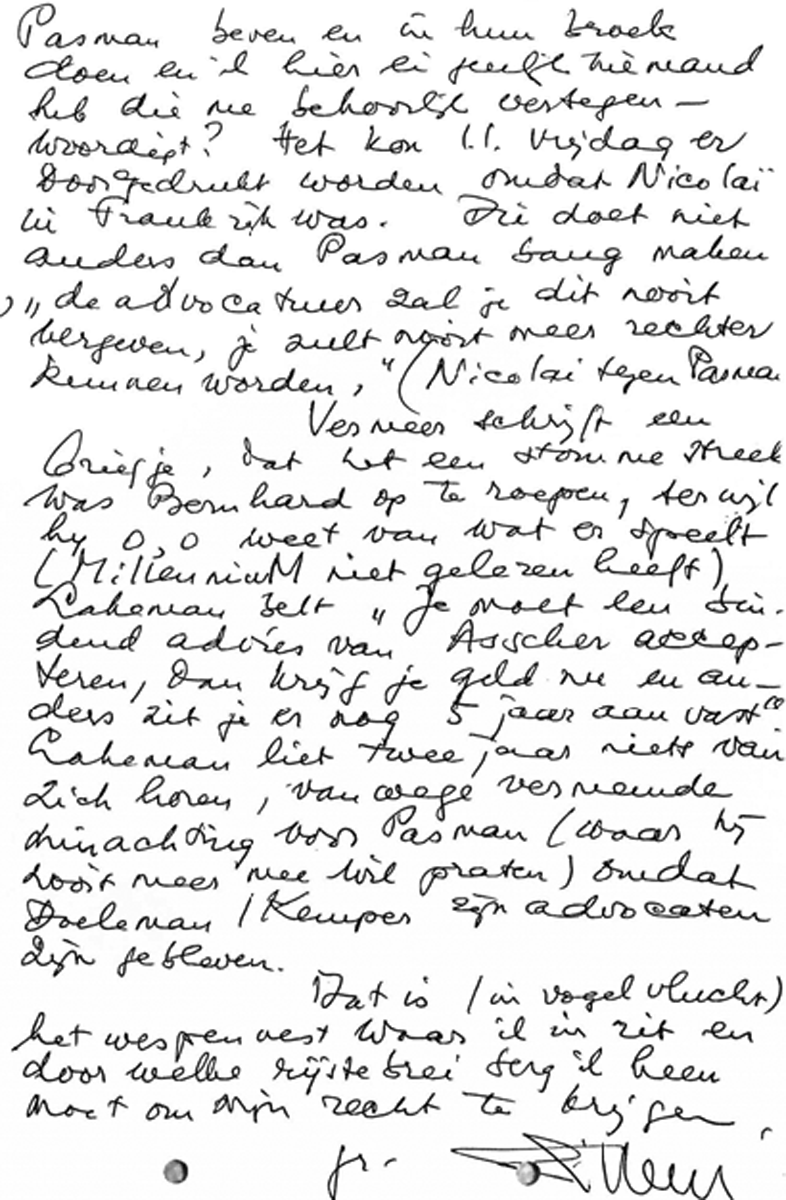 Pasman beven en in hun broek
doen en ik hier in feite niemand
heb die me behoorlijk vertegen-
woordigt? Het kon l.l. vrijdag er
doorgedrukt worden omdat Nicolaï
in Frankrijk was. Die doet niet
anders dan Pasman bang maken
„de advocatuur zal je dit nooit
vergeven, je zult nooit meer rechter
kunnen worden," (Nicolai tegen Pasman
Vermeer schrijft een
briefje, dat het een stomme streek
was Bernhard op te roepen, terwijl
hy 0,0 weet van wat er speelt
(MillenniuM niet gelezen heeft)
Lakeman belt „Je moet een bin-
dend advies van Asscher accep-
teren, dan krijg je geld nu en an-
ders zit je er nog 5 jaar aan vast"
Lakeman liet twee jaar niets van
zich horen, vanwege vermeende
minachting voor Pasman (waar hij
nooit meer mee wil praten) omdat
Doeleman / Kemper zijn advocaten
zijn gebleven.
Dat is (in vogelvlucht)
het wespennest waar ik in zit en
door welke rijstebrei berg ik heen
moet om mijn recht te krijgen.
gr.
Willem